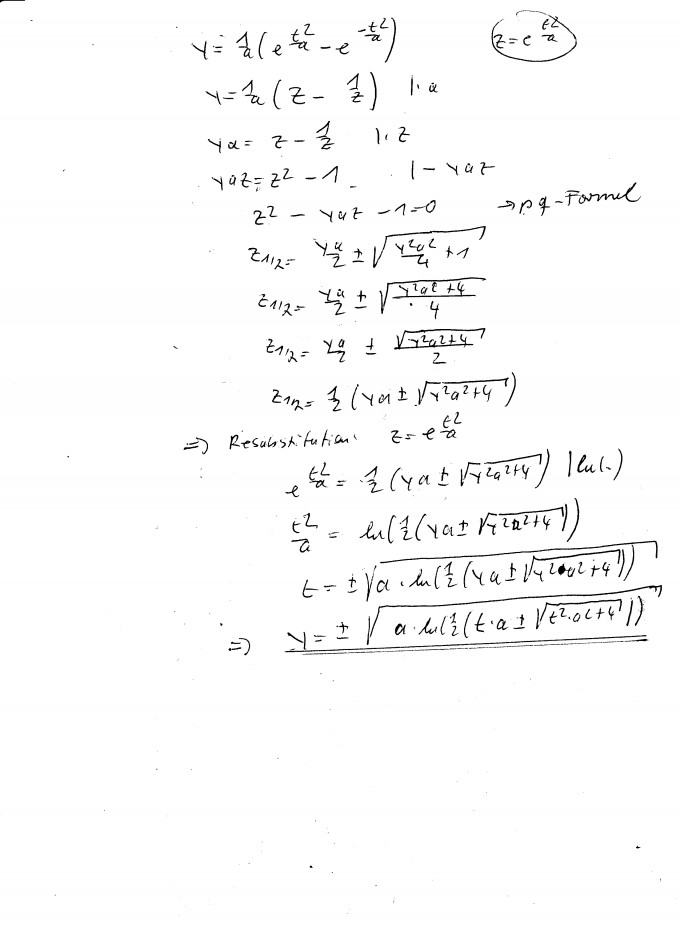 y = 1/a (e^(t²/a) − e^(−t²/a))   z = e^(t²/a)
y = 1/a (z − 1/z) |· a
ya = z − 1/z |· z
yaz = z² − 1 |− yaz
z² − yaz − 1 = 0 → pq-Formel
z1/2 = ya/2 ± √(y²a²/4 + 1)
z1/2 = ya/2 ± √((y²a² + 4)/4)
z1/2 = ya/2 ± √(y²a² + 4)/2
z1/2 = 1/2 (ya ± √(y²a² + 4))
⇒ Resubstitution: z = e^(t²/a)
e^(t²/a) = 1/2 (ya ± √(y²a² + 4)) | ln(..)
t²/a = ln(1/2 (ya ± √(y²a² + 4)))
t = ±√(a · ln(1/2 (ya ± √(y² · a² + 4))))
⇒ y = ±√(a · ln(1/2 (t · a ± √(t² · a² + 4))))